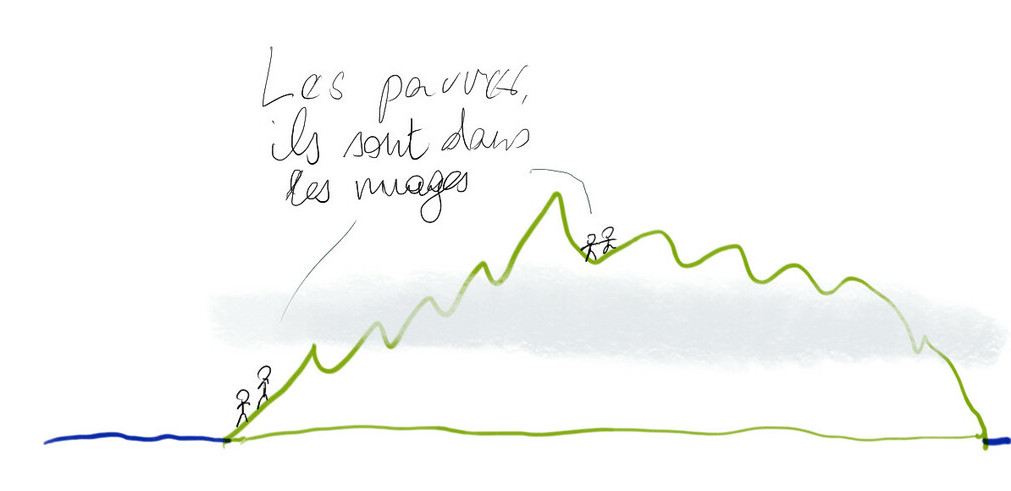 Les pauvres,
ils sont dans
les nuages